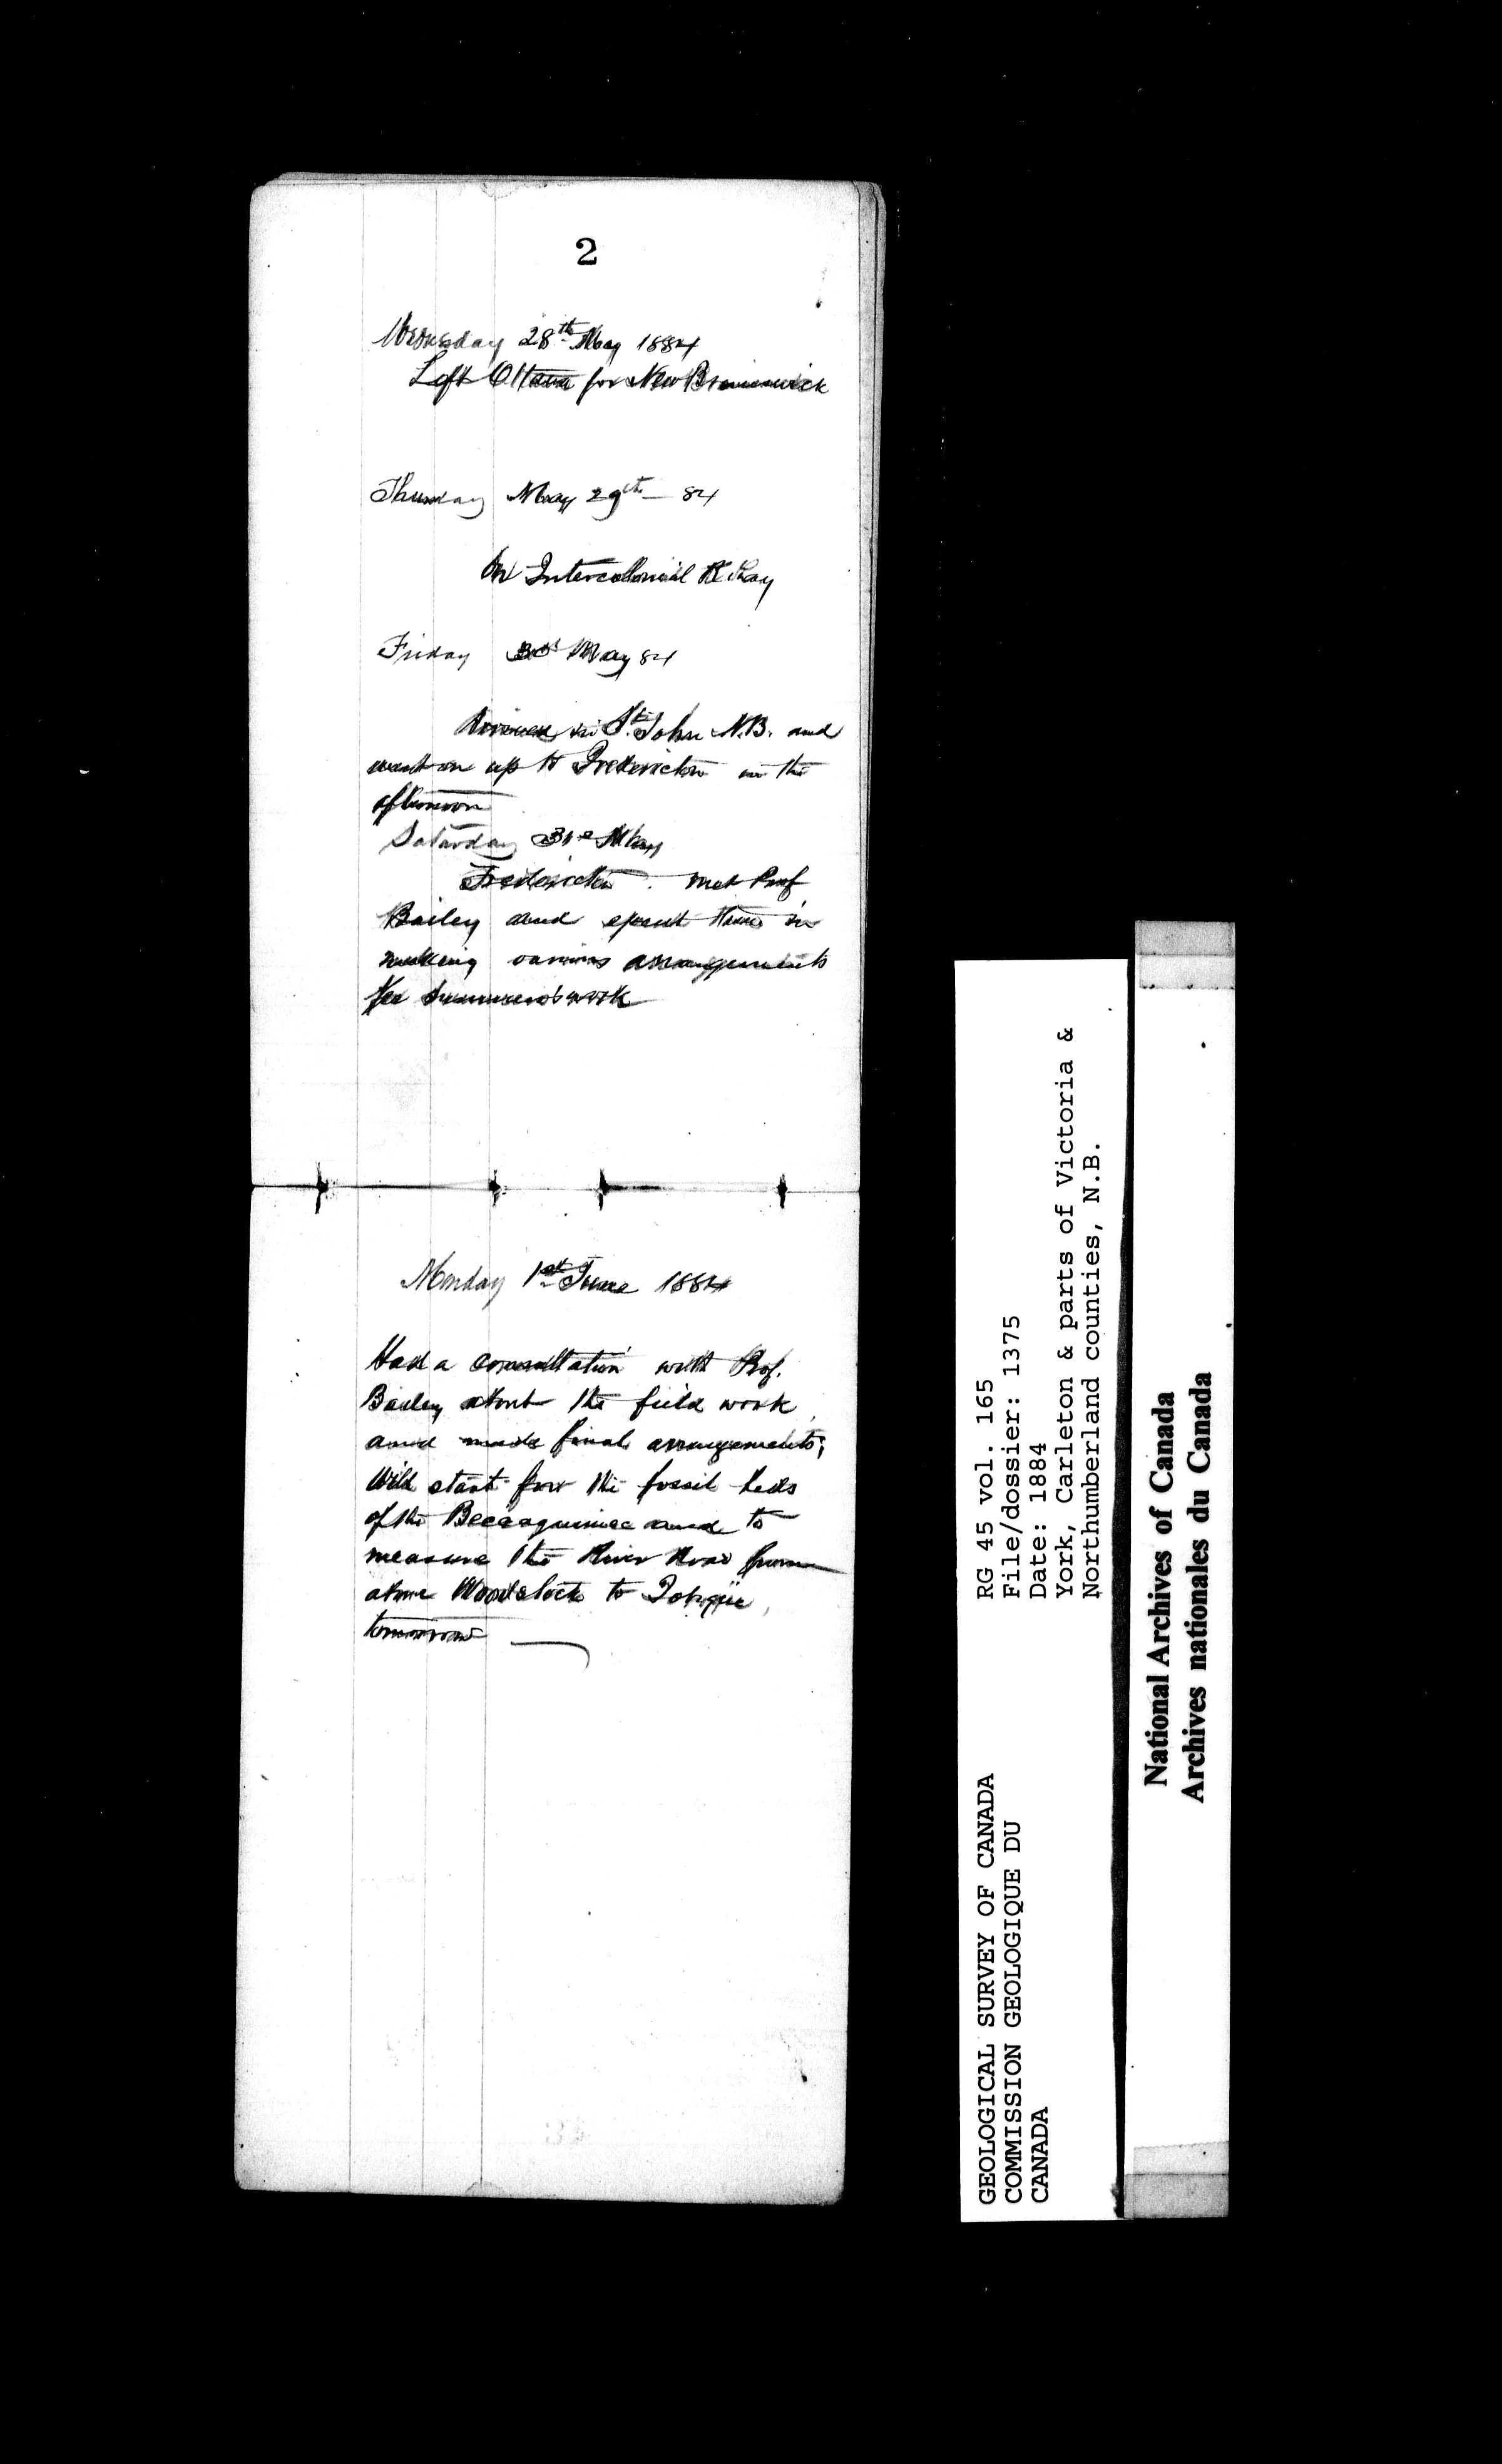 2
Wednesday 28th May 1884
Left Ottawa for New Brunswick
Thursday May 29th — 84
On Intercolonial R. Way
Friday 30th May 84
Arrived in St. John N.B. and
went on up to Fredericton in the
afternoon
Saturday 31st May
Fredericton. Met Prof
Bailey and spent time in
making various arrangements
for summer's work
Monday 1st June 1884
Had a consultation with Prof.
Bailey about the field work
and made final arrangements;
Will start for the fossil beds
of the Beccaguimec and to
measure the River Road from
above Woodstock to Tobique,
tomorrow —
RG 45 vol. 165
File/dossier: 1375
Date: 1884
York, Carleton & parts of Victoria &
Northumberland counties, N.B.
GEOLOGICAL SURVEY OF CANADA
COMMISSION GEOLOGIQUE DU
CANADA
National Archives of Canada
Archives nationales du Canada